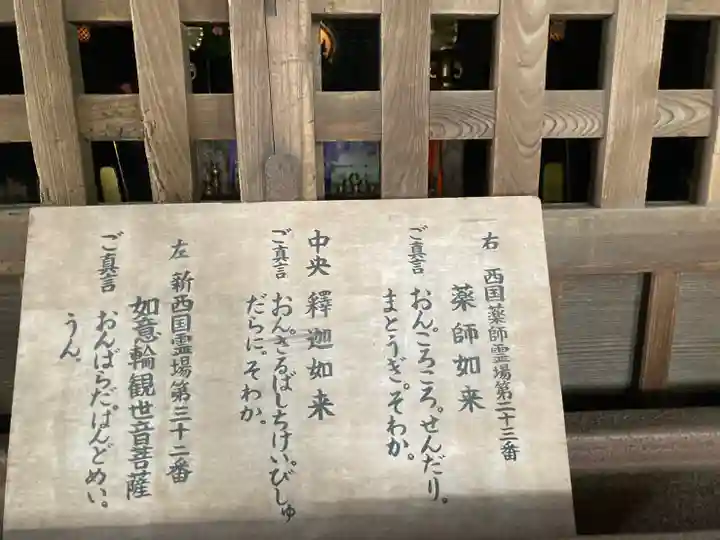 右 西国薬師霊場第二十三番
薬師如来
ご真言 おん。ころころ。せんだり。
まとうぎ。そわか。
中央 釋迦如来
ご真言 おん。さるばしちけい。びしゅ
だらに。そわか。
左 新西国霊場第三十二番
如意輪観世音菩薩
ご真言 おんばらだ。はんどめい。
うん。